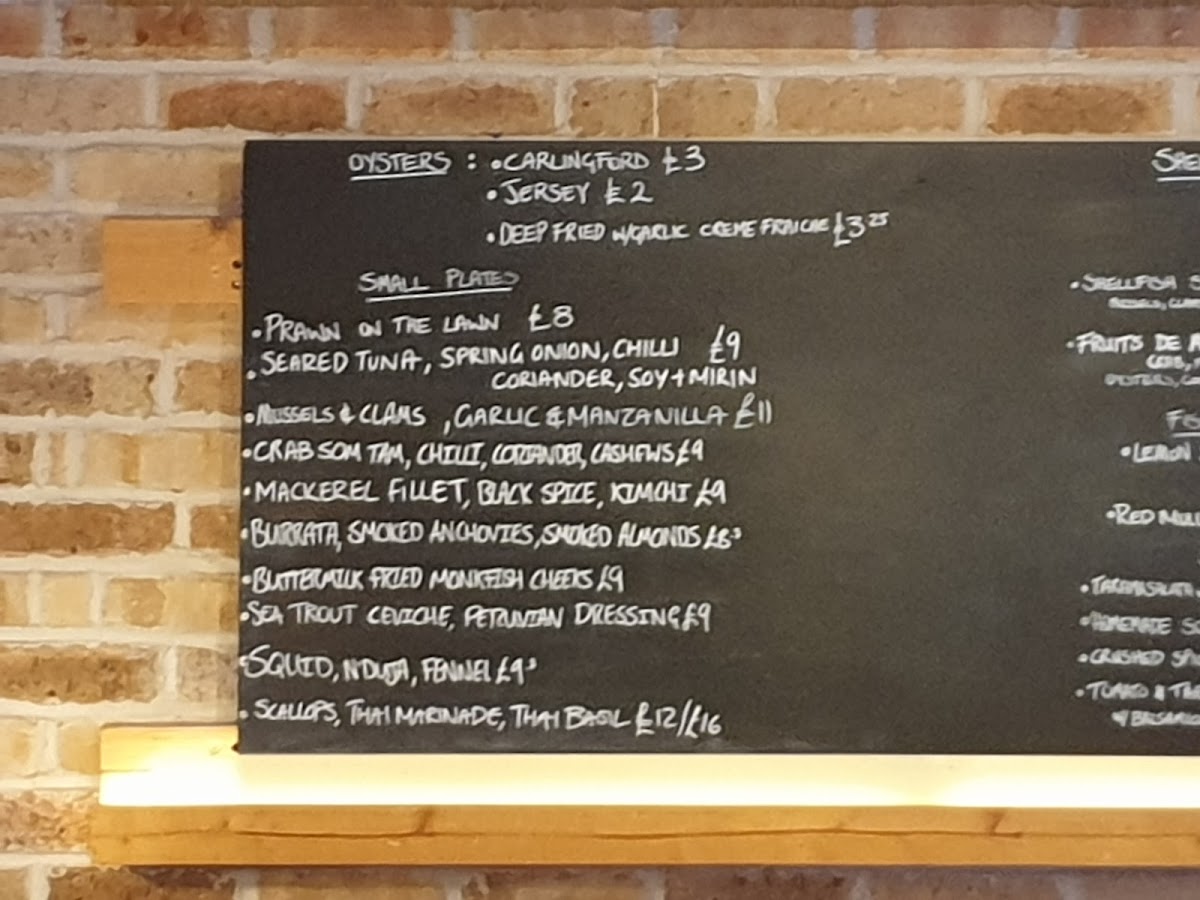 OYSTERS : • CARLINGFORD £3
• JERSEY £2
• DEEP FRIED W/GARLIC CREME FRAICHE £3 25
SMALL PLATES
• PRAWN ON THE LAWN £8
• SEARED TUNA, SPRING ONION, CHILLI £9
CORIANDER, SOY + MIRIN
• MUSSELS & CLAMS , GARLIC & MANZANILLA £11
• CRAB SOM TAM, CHILLI, CORIANDER, CASHEWS £9
• MACKEREL FILLET, BLACK SPICE, KIMCHI £9
• BURRATA, SMOKED ANCHOVIES, SMOKED ALMONDS
• BUTTERMILK FRIED MONKFISH CHEEKS £9
• SEA TROUT CEVICHE, PERUVIAN DRESSING £9
• SQUID, N'DUJA, FENNEL
• SCALLOPS, THAI MARINADE, THAI BASIL £12/£16
SPE
• SHELLFISH S
MUSSELS, CLA
• FRUITS DE M
OYSTERS,
• LEMON
• RED MUL
• TARAMASALATA
• HOMEMADE SO
• CRUSHED SP